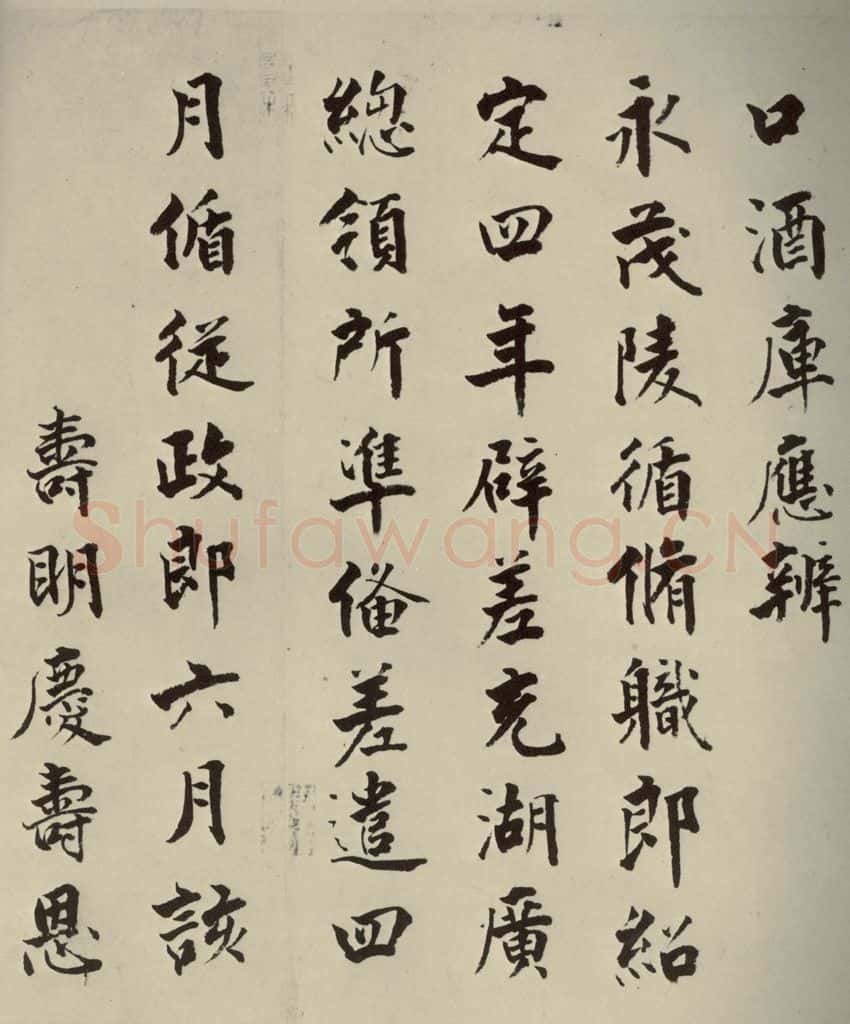 口酒庫應辦
永茂陵循脩職郎紹
定四年辟差充湖廣
總領所準俻差遣四
月循從政郎六月該
壽明慶壽恩
Shufawang.CN